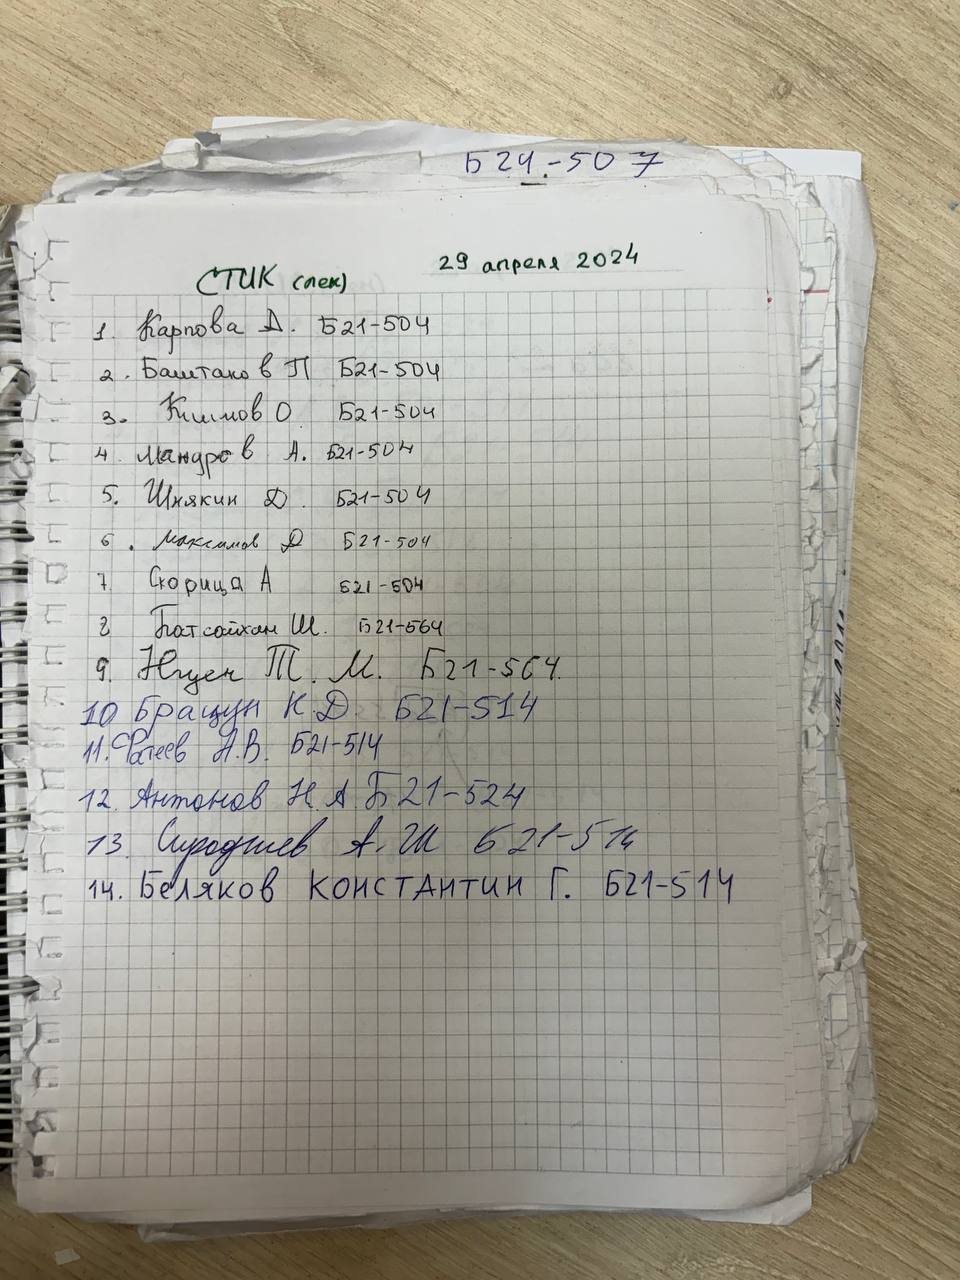 Б24-507
СТИК (лек) 29 апреля 2024
1. Карпова Д. Б21-504
2. Баштаков П Б21-504
3. Климов О Б21-504
4. Мандров А. Б21-504
5. Шнякин Д. Б21-504
6. Максимов Д Б21-504
7 Скорица А Б21-504
8 Батсайхан Ш. Б21-564
9. Нгуен Т. М. Б21-564.
10 Бращун К Д Б21-514
11. Фатеев А.В. Б21-514
12. Антонов Н А Б21-524
13. Сироджев А. Ш Б21-514
14. Беляков Константин Г. Б21-514